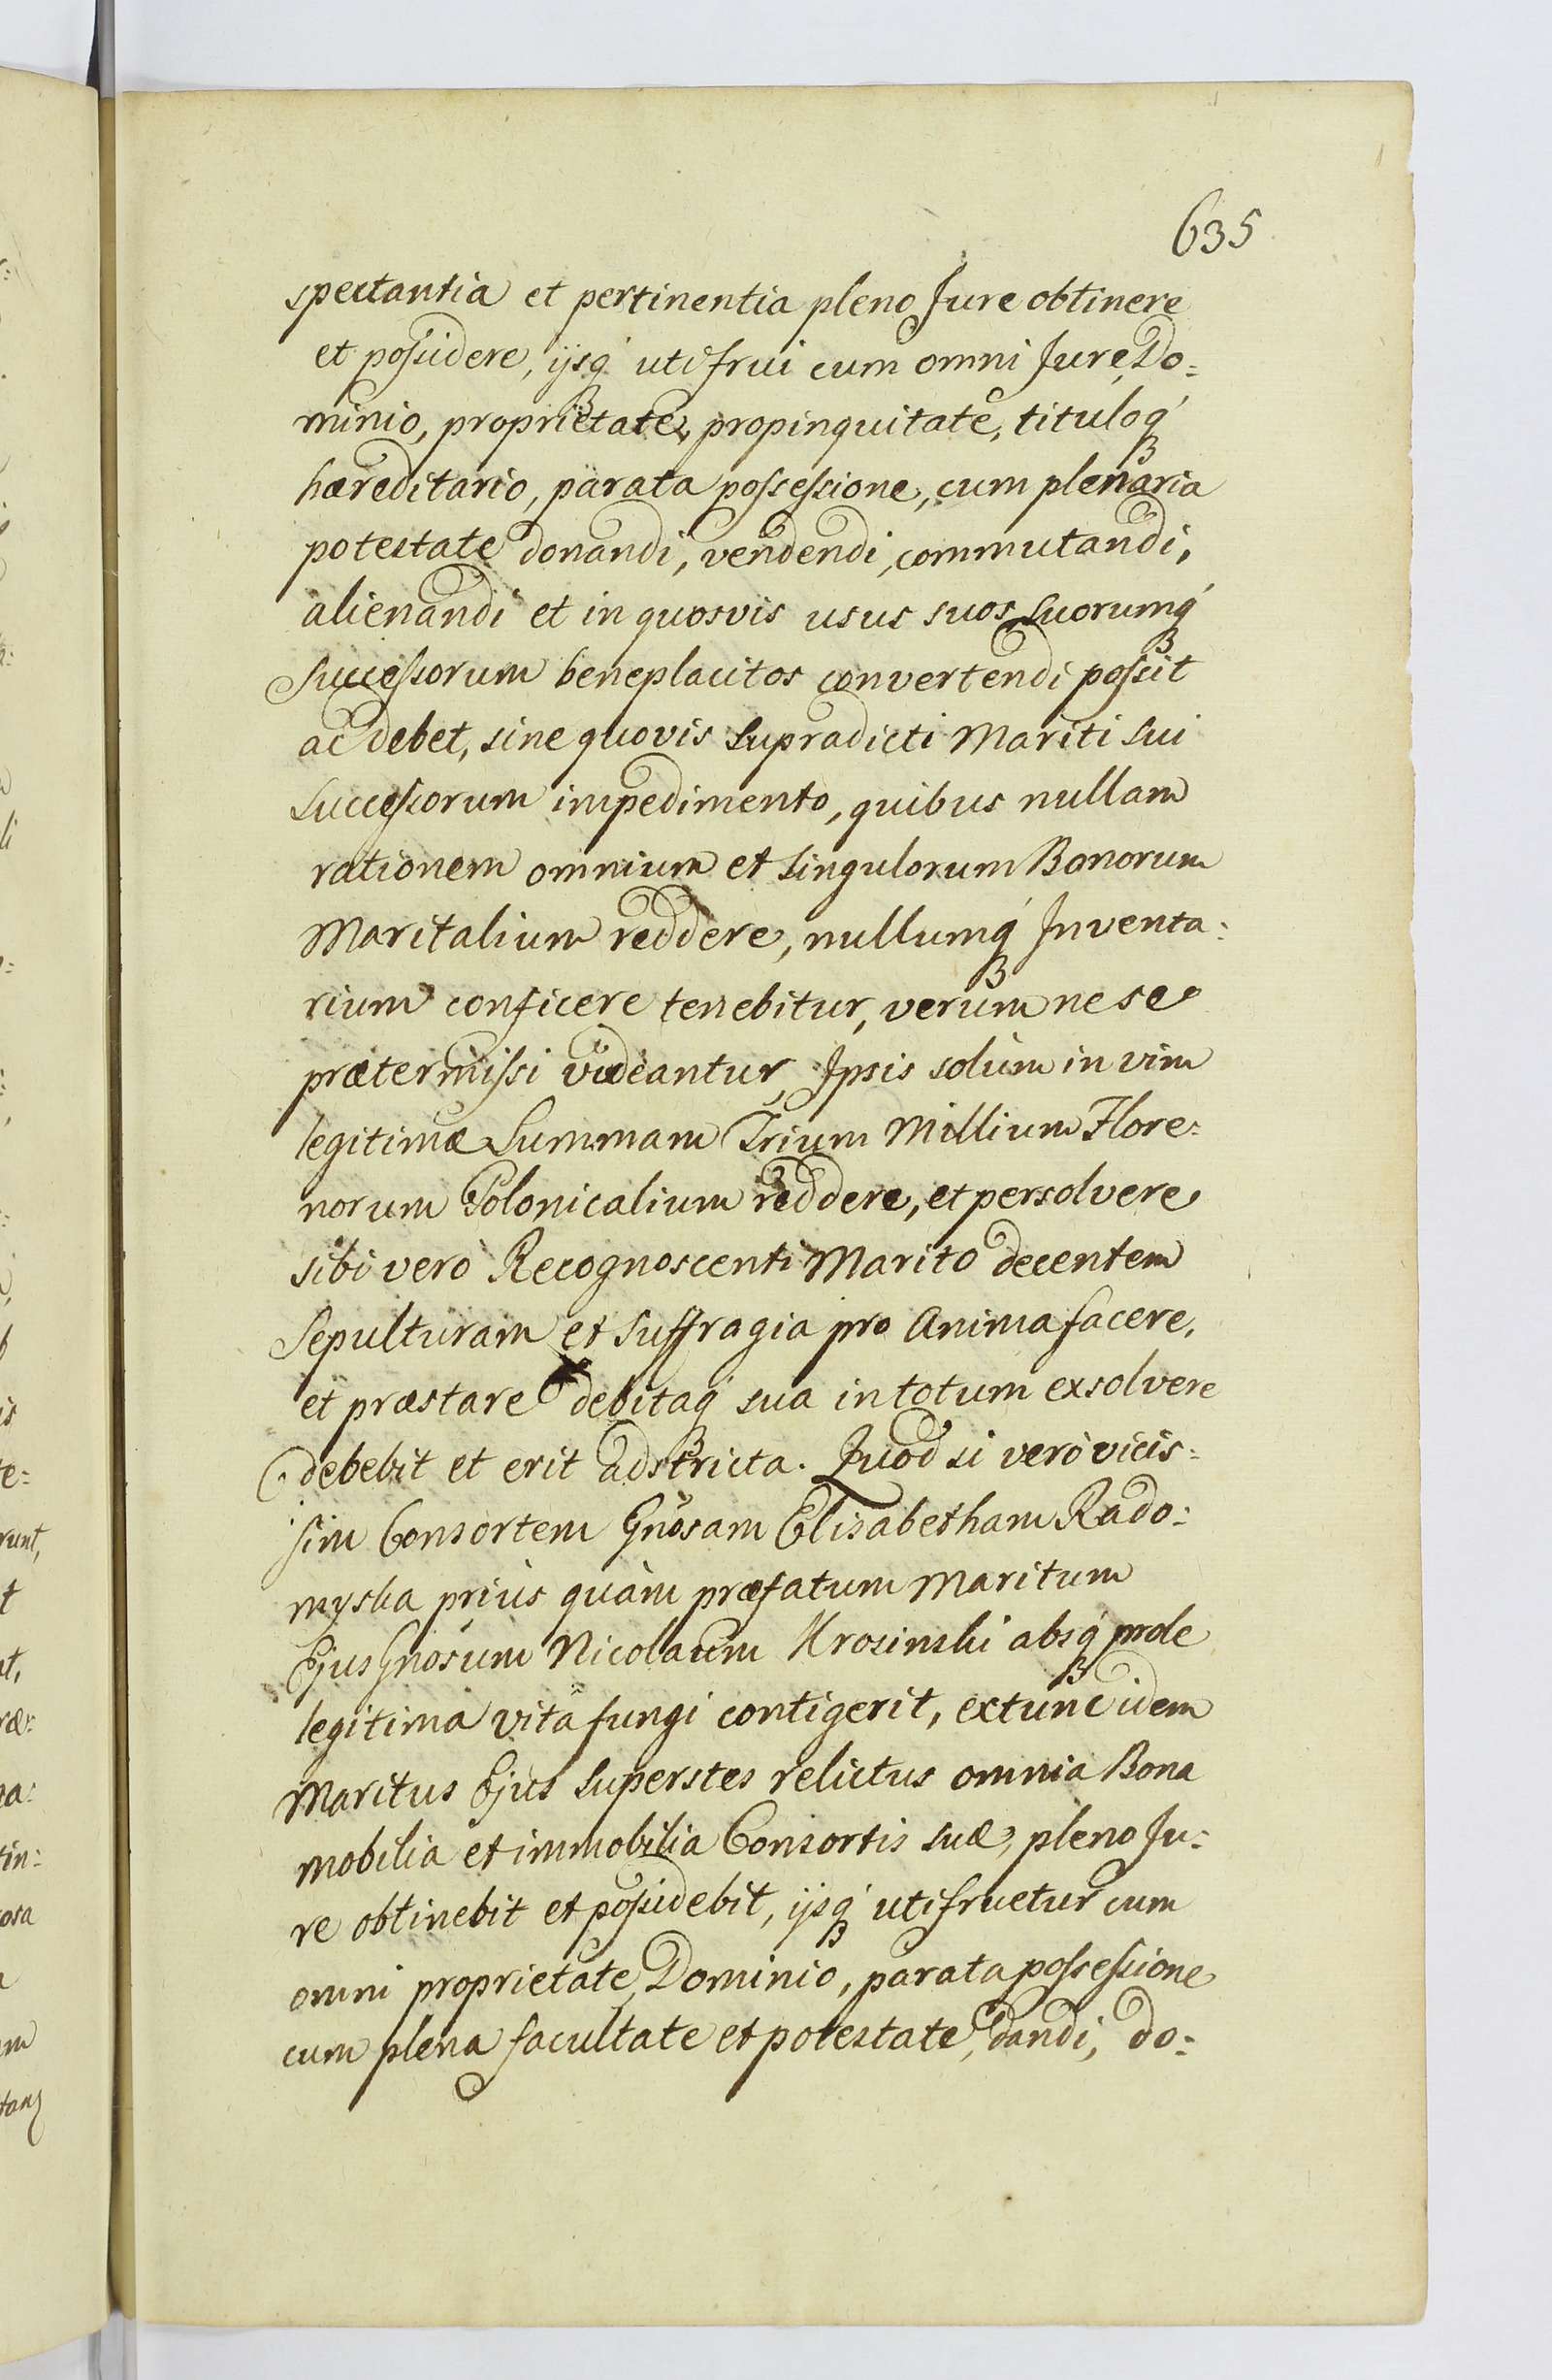 635
spectantia et pertinentia pleno Jure obtinere
et possidere, ijsq́ utifrui cum omni Jure, Do=
minio, proprietate, propinquitate, tituloq́
hæreditario, parata possessione, cum plenaria
potestate donandi, vendendi, commutandi,
alienandi et in quosvis usus suos suorumq́
Successorum beneplacitos convertendi possit
ac debet, sine quovis supradicti Mariti sui
Successorum impedimento, quibus nullam
rationem omnium et singulorum Bonorum
Maritalium reddere, nullumq́ Inventa=
rium conficere tenebitur, verùm ne se
prætermissi videantur, Ipsis solùm in vim
legitimæ Summam Trium Millium Flore=
norum Polonicalium reddere, et persolvere
sibi verò Recognoscenti Marito decentem
Sepulturam et Suffragia pro Anima facere,
et præstare debitaq́ sua in totum exsolvere
debebit et erit adstricta. Quod si verò vicis=
sim Consortem Gnosam Elisabetham Rado=
myska priùs quàm præfatum Maritum
Ejus Gnosum Nicolaum Krosinski absq́ prole
legitima vitâ fungi contigerit, extunc idem
Maritus Ejus superstes relictus omnia Bona
mobilia et immobilia Consortis suæ, pleno Ju=
re obtinebit et possidebit, ijsq́ utifruetur cum
omni proprietate, Dominio, parata possessione
cum plena facultate et potestate, dandi, do=